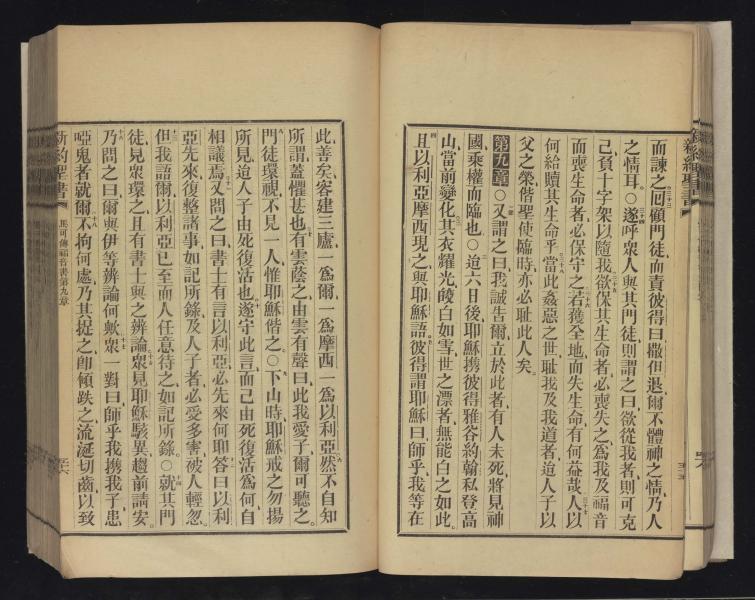 而諫之囘顧門徒而責彼得曰撒但退爾不體神之情乃人
之情耳○遂呼衆人與其門徒則謂之曰欲從我者則可克
己負十字架以隨我欲保其生命者必喪失之爲我及福音
而喪生命者必保守之若獲全地而失生命有何益哉人以
何給贖其生命乎當此姦惡之世恥我及我道者迨人子以
父之榮偕聖使臨時亦必恥此人矣
第九章○又謂之曰我誠告爾立於此者有人未死將見神
國乘權而臨也○迨六日後耶穌携彼得雅各約翰私登高
山當前變化其衣耀光皎白如雪世之漂者無能白之如此
且以利亞摩西現之與耶穌語彼得謂耶穌曰師乎我等在
此善矣容建三廬一爲爾一爲摩西一爲以利亞然不自知
所謂蓋懼甚也有雲蔭之由雲有聲曰此我愛子爾可聽之
門徒環視不見一人惟耶穌偕之○下山時耶穌戒之勿揚
所見迨人子由死復活也遂守此言而己由死復活爲何自
相議焉又問之曰書士有言以利亞必先來何耶答曰以利
亞先來復整諸事如記所錄及人子者必受多害被人輕忽
但我語爾以利亞已至而人任意待之如記所錄○就其門
徒見衆環之且有書士與之辨論衆見耶穌駭異趨前請安
乃問之曰爾與伊等辨論何歟衆一對曰師乎我携我子患
啞鬼者就爾不拘何處乃其捉之卽傾跌之流涎切齒以致
新約聖書 馬可傳福音書第九章